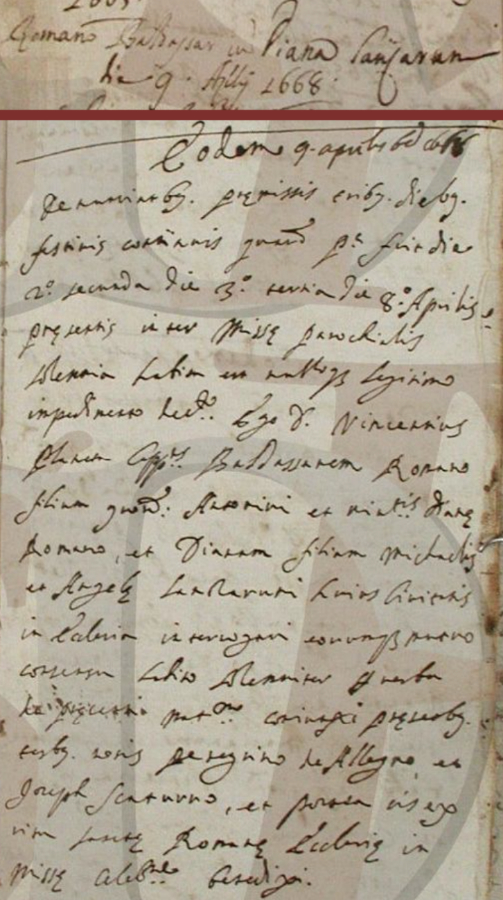 Romano Baldassar in Diana Lanzarun
die 9 Aplis 1668
Eodem 9 aprilis 6 ind 1668
Denunciatibg. premissis tribg. diebg.
festivis continuis quarū pª fuit die
2º secunda die 3º tertia die 8º Aprilis
presentis inter Misse parochialis
solemnia habita nulloqȝ legitimo
impedimento detº. Ego D. Vincentius
Capp.ⁿˢ Baldassarem Romano
filium quond: Antonini et viventis Diane
Romano, et Dianam filiam Michaelis
et Angele Lanzaruni huius Civitatis
in Ecclesia interrogavi eorumqȝ mutuo
consensu habito solemniter p verba
de presenti matrᵐᵒ coniunxi presentbg.
testbg. notis peregrino de Allegro et
Joseph Scaturro, et postea eis ex
ritu sancte Romane Ecclesie in
Misse celebⁿᵉ benedixi.